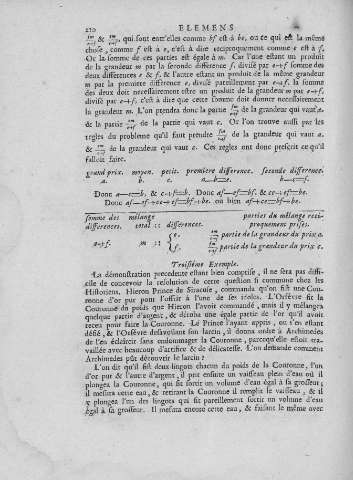 210 ELEMENS
fm/e+f & em/e+f, qui sont entr'elles comme bf est à be, ou ce qui est la même
chose, comme f est à e, c'est à dire réciproquement comme e est à f.
Or la somme de ces parties est égale à m. Car l'une estant un produit
de la grandeur m par la seconde difference f, divisé par e+f somme des
deux differences e & f, & l'autre estant un produit de la même grandeur
m par la premiere difference e, divisé pareillement par e+f, la somme
des deux doit necessairement estre un produit de la grandeur m par e+f,
divisé par e+f, c'est à dire que cette somme doit donner necessairement
la grandeur m. L'on prendra donc la partie de la grandeur qui vaut a,
& la partie de la grandeur qui vaut c. Or l'on trouve aussi par les
regles du problême qu'il faut prendre de la grandeur qui vaut a,
& de la grandeur qui vaut c. Ces regles ont donc prescrit ce qu'il
falloit faire.
grand prix. moyen. petit. premiere difference. seconde difference.
a. b. c. a—b=e. b—c=f.
Donc a—e=b, & c+f=b. Donc af—ef=bf, & ce+ef=be.
Donc af—ef+ce+ef=bf+be. ou bien af+ce=bf+be.
somme des mélange parties du mélange reci-
differences. total :: differences. proquement prises.
e+f. m :: e, partie de la grandeur du prix a.
f, partie de la grandeur du prix c.
Troisiéme Exemple.
La démonstration precedente estant bien comprise, il ne sera pas diffi-
cile de concevoir la resolution de cette question si commune chez les
Historiens. Hieron Prince de Siracuse, commanda qu'on fist une Cou-
ronne d'or pur pour l'offrir à l'une de ses idoles. L'Orfévre fit la
Couronne du poids que Hieron l'avoit commandé, mais il y mélangea
quelque partie d'argent, & déroba une égale partie de l'or qu'il avoit
receu pour faire la Couronne. Le Prince l'ayant appris, ou s'en estant
défié, & l'Orfévre desavoüant son larcin, il donna ordre à Archimédes
de s'en éclaircir sans endommager la Couronne, parcequ'elle estoit tra-
vaillée avec beaucoup d'artifice & de délicatesse. L'on demande comment
Archimédes pût découvrir le larcin?
L'on dit qu'il fist deux lingots chacun du poids de la Couronne, l'un
d'or pur & l'autre d'argent, il prit ensuite un vaisseau plein d'eau où il
plongea la Couronne, qui fit sortir un volume d'eau égal à sa grosseur;
il mesura cette eau, & retirant la Couronne il remplit le vaisseau, & il
y plongea l'un des lingots qui fit pareillement sortir un volume d'eau
égal à sa grosseur. Il mesura encore cette eau, & faisant le même avec